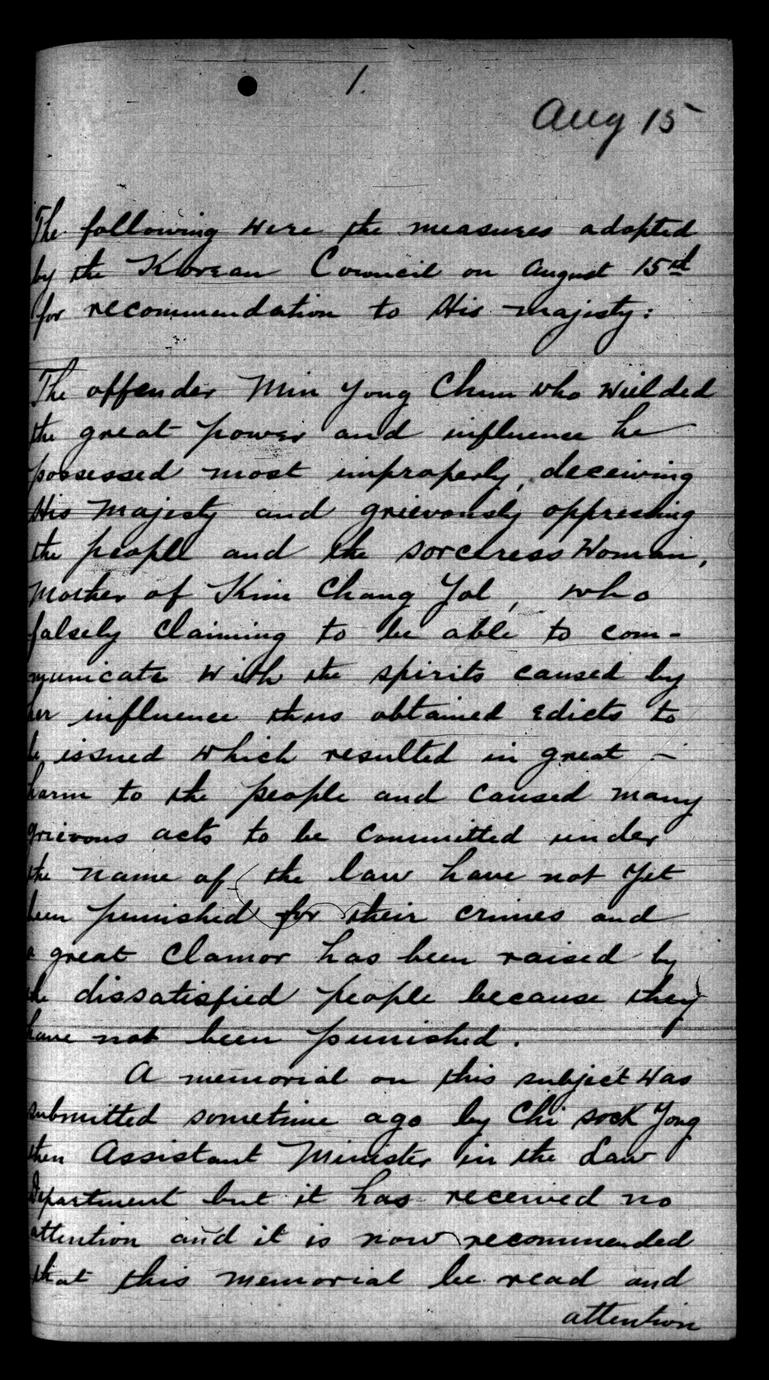 1.
Aug 15
The following were the measures adopted
by the Korean Council on August 15th
for recommendation to His Majesty:
The offender Min Yong Chun who wielded
the great power and influence he
possessed most improperly, deceiving
His Majesty and grievously oppressing
the people and the sorceress Woman,
Mother of Kim Chang Yol, who
falsely claiming to be able to com-
municate with the spirits caused by
her influence thus obtained Edicts to
be issued which resulted in great -
harm to the people and caused many
grievous acts to be committed under
the name of the law have not yet
been punished for their crimes and
a great clamor has been raised by
the dissatisfied people because they
have not been punished.
A memorial on this subject was
submitted sometime ago by Chi Sock Yong
then Assistant Minister in the Law
Department but it has received no
attention and it is now recommended
that this memorial be read and
attention